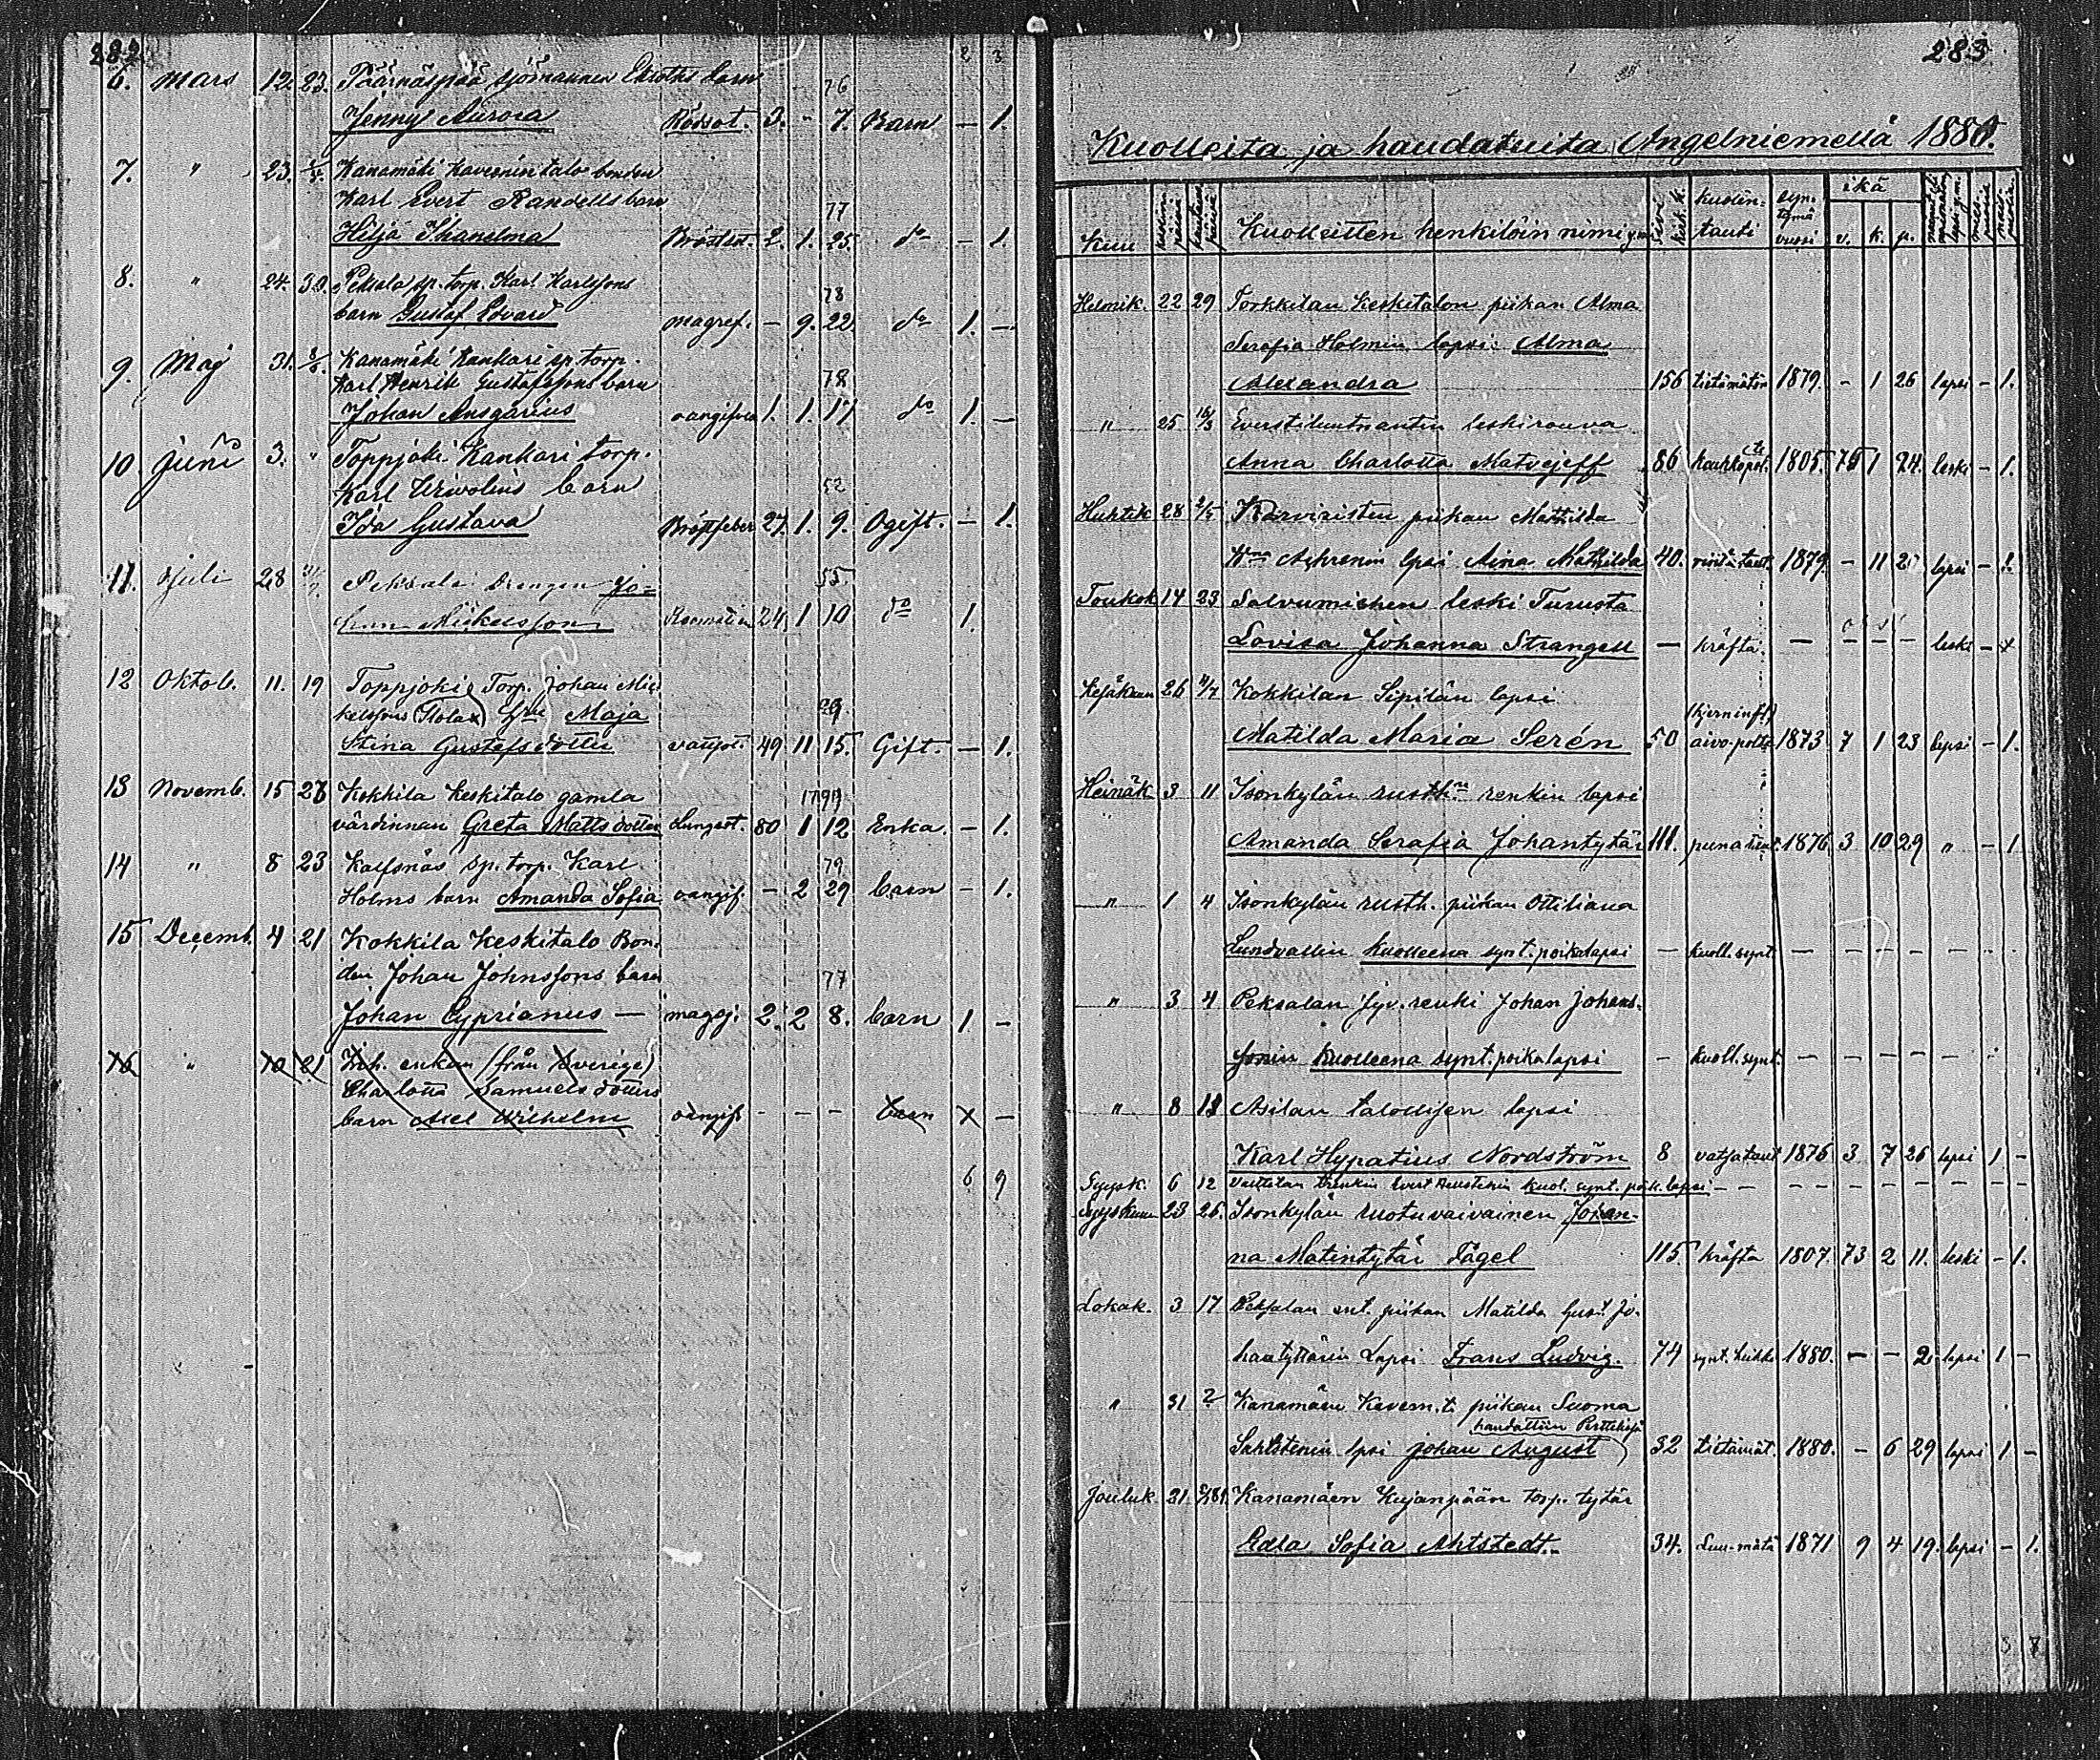 282.
2 3
6. Mars 12. 23. Päärnäspää sjömannen Ekroths barn 76
Jenny Aurora Rödsot. 3. - 7. Barn - 1.
7. " 23. Kanamäki Kavernintalo bonden
Karl Evert Randells barn 77
Hilja Bröstsot. 2. 1. 25. do - 1.
8. " 24. 30. Peksala sp. torp. Karl Karlssons 78
barn Gustaf Edvard magref. - 9. 22. do 1. -
9. Maj 31. Kanamäki Kankari sp. torp.
Karl Henrik Gustafssons barn 78
Johan Ansgarius oangifven 1. 1. 17 do 1. -
10 Juni 3. " Toppjoki Kankari torp.
Karl barn 52
Ida Gustava Bröstfeber 27. 1. 9. Ogift. - 1.
11. Juli 28 Peksala Drengen Jo= 55.
han Mickelsson 24 1 10 do 1.
12 Oktob. 11. 19 Toppjoki Torp. Johan Mic
kelssons hru Maja 29.
Stina Gustafsdotter vattsot. 49 11 15. Gift. - 1.
13 Novemb. 15 28 Kokkila Keskitalo gamla 1799
värdinnan Greta Mattsdotter Lungsot. 80 1 12 Enka. - 1.
14 " 8 23 Kalfsnäs sp. torp. Karl 79
Holms barn Amanda Sofia oangif. - 2 29 barn - 1.
15 Decemb. 4 21 Kokkila Keskitalo Bon-
den Johan Johnssons barn 77
Johan Cyprianus — magsj. 2. 2 8. barn 1 -
16 " 10 21 Inh. enkan (från Sverige)
Charlotta Samuelsdotters
barn Axel Wilhelm oangif. - - - barn 1 -
6 9
283
Kuolleita ja haudatuita Angelniemellä 1880.
Kuu Kuolleitten henkilöin nimi kuolin= tauti syn- tymä vuosi ikä v. k. p.
Helmik. 22 29 Torkkilan Keskitalon piikan Alma
Serafia Holmin lapsi Alma
Alexandra 156 tietämätön 1879. - 1 26 lapsi - 1.
" 25 16/3 Everstiluutnantin leskirouva
Anna Charlotta Matvejeff 86 1805. 75 1 24. leski - 1.
Huhtik 28 2/5 Karviaisten piikan Mathilda
Aina Mathilda 40. 1879. - 11 2 lapsi - 1.
Toukok 14 23 Salvumiehen leski Turusta
Lovisa Johanna Strangell — kräfta. — - - - leski - x
Kesäkuu 26 4/7 Kokkilan Sipilän lapsi
Matilda Maria Serén 50 (hjerninfl.) aivo-poltto 1873 7 1 23 lapsi - 1.
Heinäk 3 11 Isonkylän rusth.n renkin lapsi
Amanda Serafia Johantytär 111. punataut. 1876 3 10 29 " - 1
" 1 4 Isonkylän rusth. piikan Ottiliana
Lundvallin kuolleena synt. poikalapsi — kuoll. synt. — - - - - - -
" 3 4 Peksalan renki Johan Johans-
sonin kuolleena synt. poikalapsi - kuoll. synt. — - - - - -
" 8 Asilan talollisen lapsi
Karl Hypatius Nordström 8 vatsataut 1876 3 7 26 lapsi 1 -
Syysk. 6 12 renkin Evert kuol. synt. poik. lapsi - - - - - - - -
Syyskuu 23 26. Isonkylän ruotuvaivainen Johan-
na Matintytär Fågel 115. kräfta 1807. 73 2 11. leski - 1.
Lokak. 3 17 Peksalan ent. piikan Matilda Gust. Jo-
hantyttären Lapsi Frans Ludvig. 74 1880. - - 2. lapsi 1 -
" 31 ? Kanamäen Kavern.t. piikan Suoma
haudattiin Perttelissä
Sahlstenin lpsi Johan August) 32 tietämät. 1880. - 6 29 lapsi 1 -
Jouluk. 21 Kanamäen Kujanpään torp. tytär
Edla Sofia Ahlstedt.- 34. Luu-mätä 1871 9 4 19. lapsi - 1.